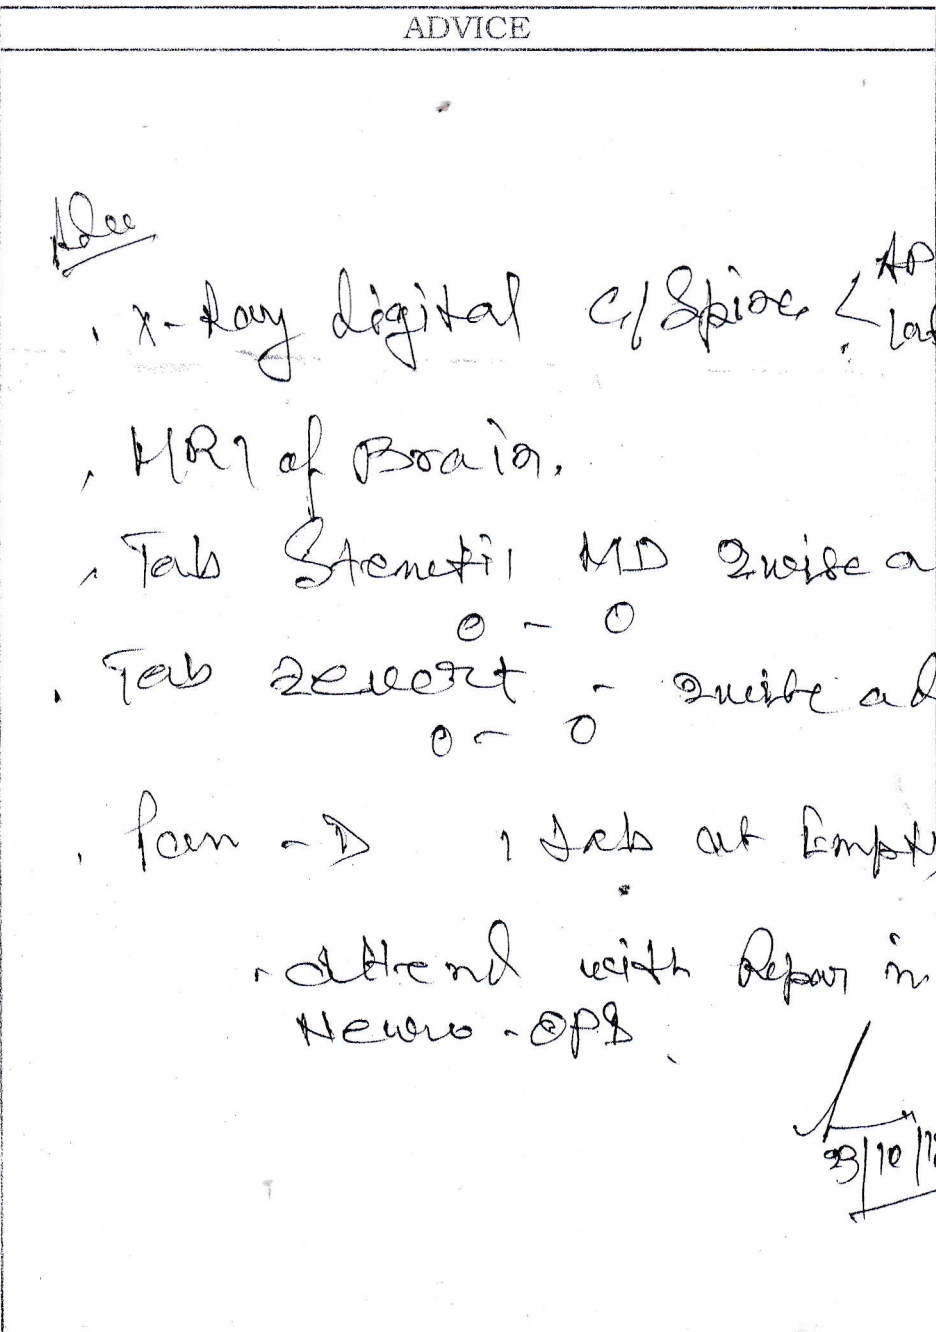 ADVICE
Adv
. X-Ray digital C/Spine < AP
lat
, MRI of Brain.
, Tab Stemetil MD 2wice a
0 - 0
. Tab Zevert - 2wice ad
0 - 0
. Pan - D 1 Tab at Empty
. attend with Repor in
Neuro - OPD.
23/10/1